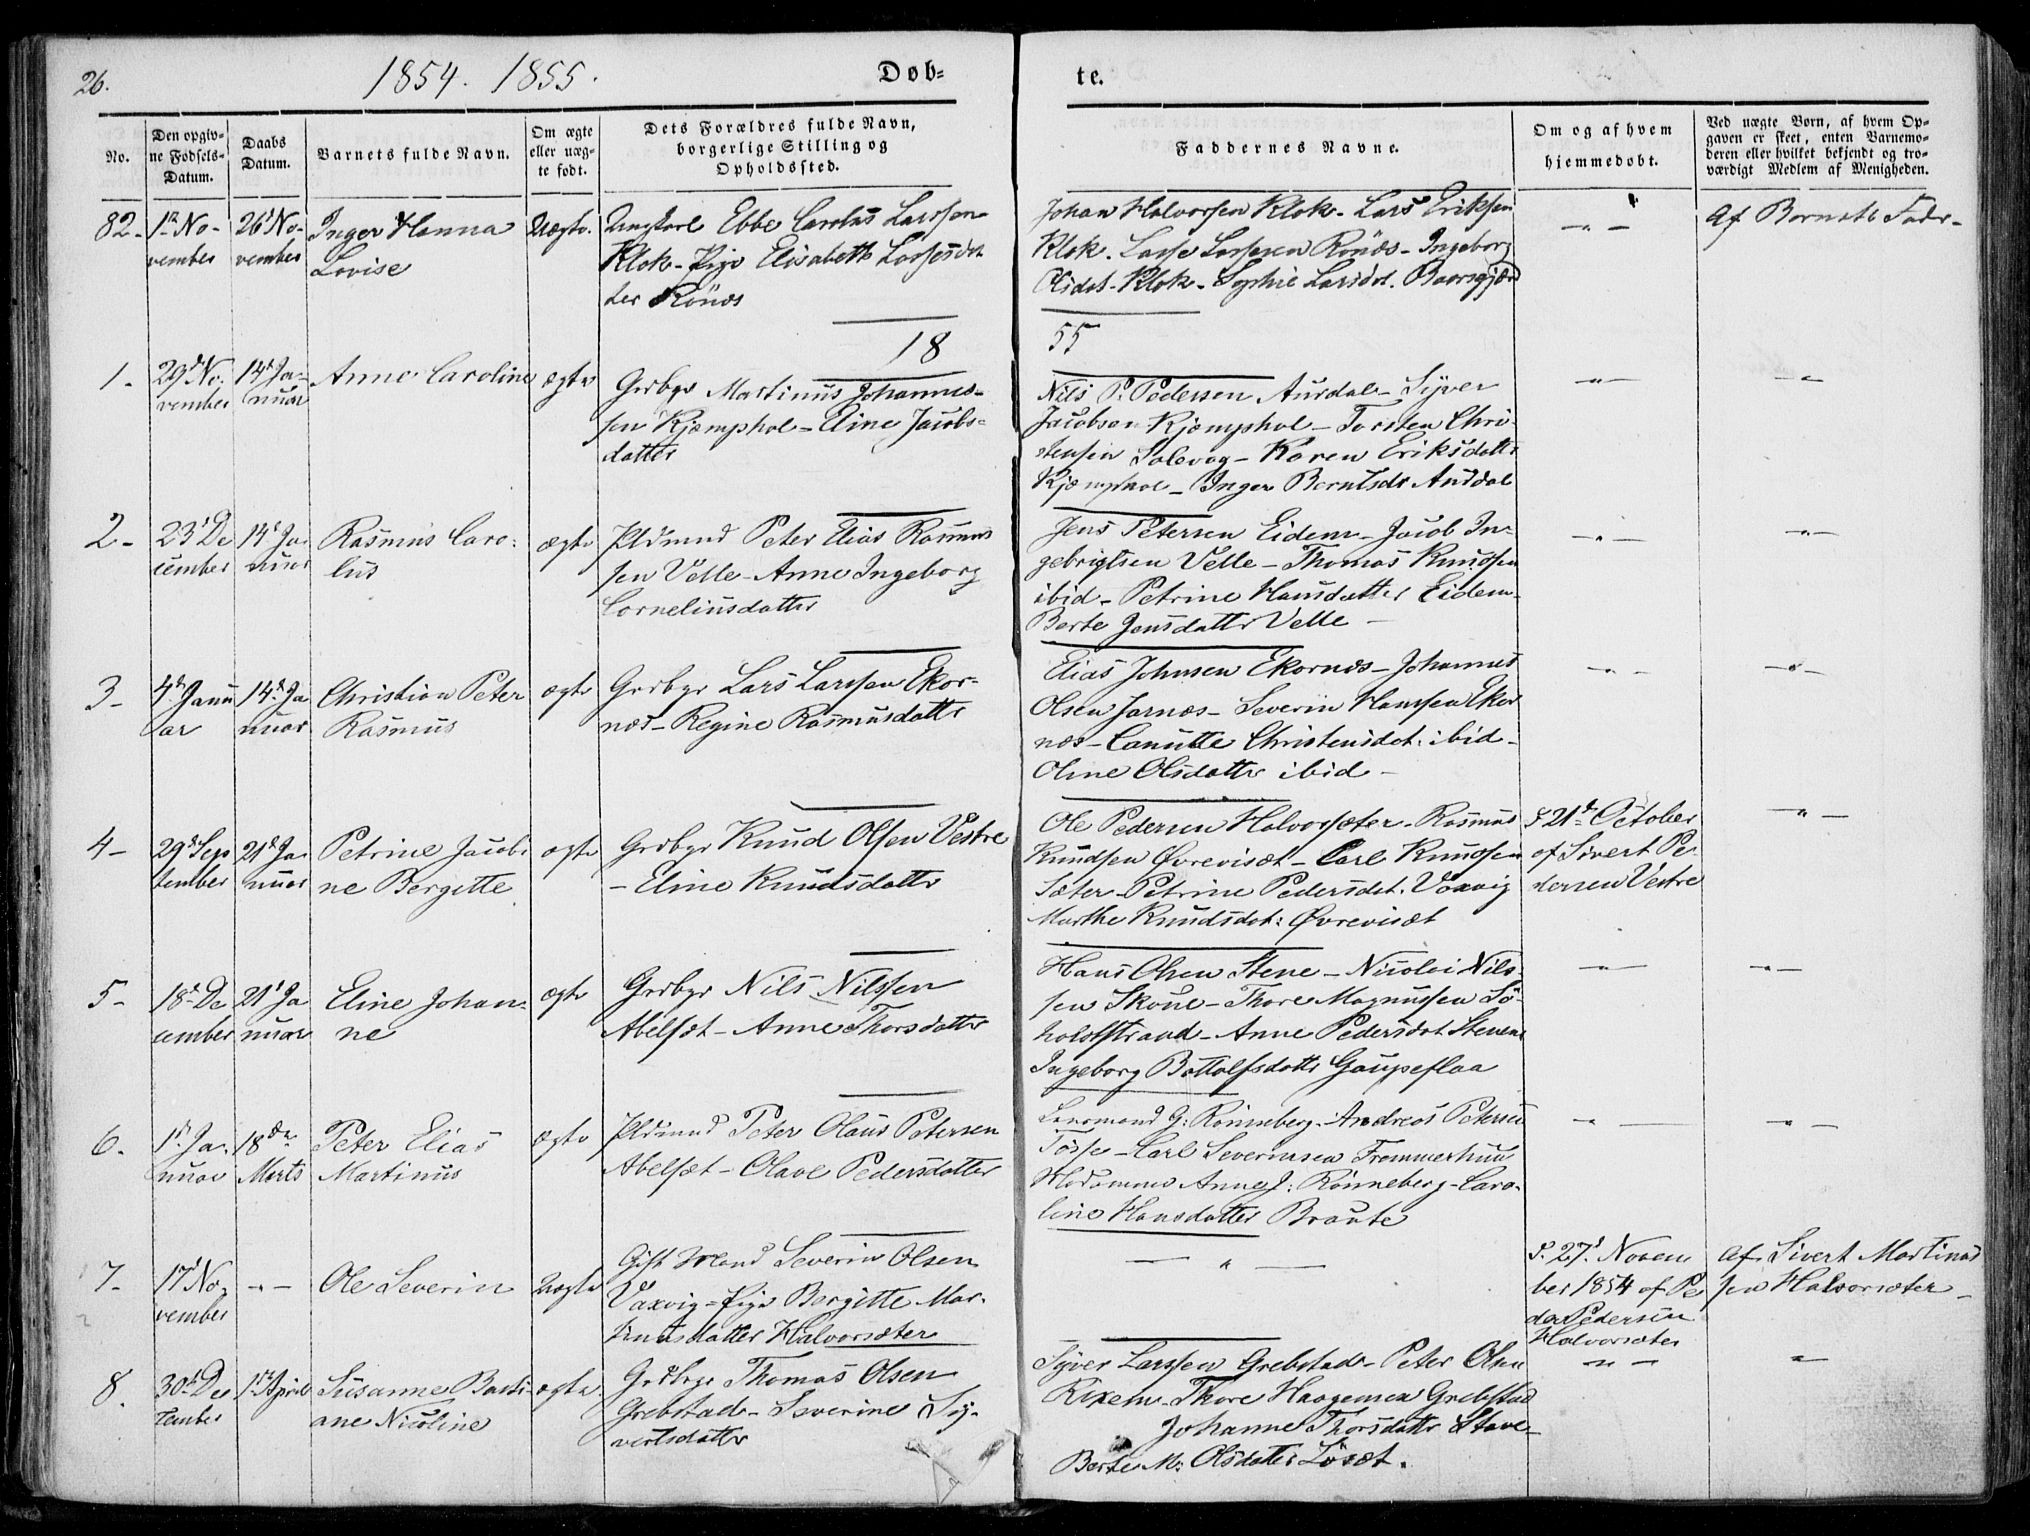 26.
1854. 1855.
Døb-
te.
No.
Den opgiv-
ne Fødsels-
Datum.
Daabs
Datum.
Barnets fulde Navn.
Om ægte
eller uæg-
te født.
Dets Forældres fulde Navn,
borgerlige Stilling og
Opholdssted.
Faddernes Navne.
Om og af hvem
hjemmedøbt.
Ved uægte Børn, af hvem Op-
gaven er skeet, enten Barnemo-
deren eller hvilket bekjendt og tro-
værdigt Medlem af Menigheden.
82-
1st No-
vember
26d No-
vember
Inger Hanna
Lovise
Uægte.
Ungkarl Ebbe Carolus Larssen
Klok- Pige Elisabeth Lassesdat
ter Rönæs
Johan Halvorsen Klok- Lars Eriksen
Klok- Lasse Lassesen Rönæs- Ingeborg
Olsdat- Klok- Sophie Larsdot.
- " -
Af Barnets Fader-
18
55
1-
29d No-
vember
14d Ja-
nuar
Anne Caroline
ægte
Grdbgr Martinus Johannes-
sen Kjæmphol- Eline Jacobs-
datter
Nils P. Pedersen Aursdal- Syver
Jacobsen Kjæmphol- Torsten Chri-
stensen Solevog- Karen Eriksdatter
Kjæmphol- Inger Berntsdr Aursdal
- " -
- " -
2-
23d De
cember
14d Ja-
nuar
Rasmus Caro-
lus
ægte
Pldsmnd Peter Elias Rasmus
sen Velle- Anne Ingeborg
Corneliusdatter
Jens Petersen Eidem- Jacob In-
gebrigtsen Velle- Thomas Knudsen
ibid- Petrine Hansdatter Eidem-
Berte Jensdatter Velle-
- " -
- " -
3-
4d Janu
ar
14d Ja
nuar
Christian Peter
Rasmus
ægte
Grdbgr Lars Larssen Ekor-
næs- Regine Rasmusdatter
Elias Johnsen Ekornæs- Johannes
Olsen Jarnæs- Severin Hanssen Ekor
næs- Canutte Christensdot: ibid-
Oline Olsdatter ibid-
- " -
- " -
4-
29d Sep
tember
21d Ja
nuar
Petrine Jacobi
ne Bergitte
ægte
Grdbgr Knud Olsen Vestre
- Eline Knudsdatter
Ole Pedersen Halvorsæter- Rasmus
Knudsen Øvrevisæt- Carl Knudsen
Sæter- Petrine Pedersdot. Vaxvig
Marthe Knudsdot: Øvrevisæt
d 21d October
af Sivert Pe-
dersen Vestre
- " -
5-
18d De
cember
21d Ja
nuar
Eline Johan-
ne
ægte
Grdbgr Nils Nilssen
Abelsæt- Anne Thorsdatter
Hans Olsen Stene- Nicolai Nils-
sen Skoue- Thore Magnussen Sö-
holtstrand- Anne Pedersdot Stenene
Ingeborg Bottolfsdatter Gaupeflaa
- " -
- " -
6-
1d Ja-
nuar
18de
Marts
Peter Elias
Martinus
ægte
Pldsmnd Peter Olaus Petersen
Abelsæt- Olave Pedersdatter
Lensmand G: Rönneberg- Andreas Petersen
Tösse- Carl Severinsen
Madamme Anne J: Rönneberg- Caro-
line Hansdatter Braute
- " -
- " -
7-
17d No-
vember
- " -
Ole Severin
Uægte
Gift Mand Severin Olsen
Vaxvig- Pige Bergitte Mar-
tinusdatter Halvorsæter
- " -
d. 27d Novem
ber 1854 af Pe
der Pedersen
Halvorsæter
Af Sivert Martinus
sen Halvorsæter-
8.
30d De
cember
1ste April
Susanne Basti-
ane Nicoline
ægte
Grdbgr Thomas Olsen
Grebstad- Severine Sy-
vertsdatter
Syver Larssen Grebstad- Peter Olsen
Rixem- Thore Haagensen Grebstad
Johanne Thorsdatter Stave-
Berte M: Olsdatter Løsæt.
- " -
"